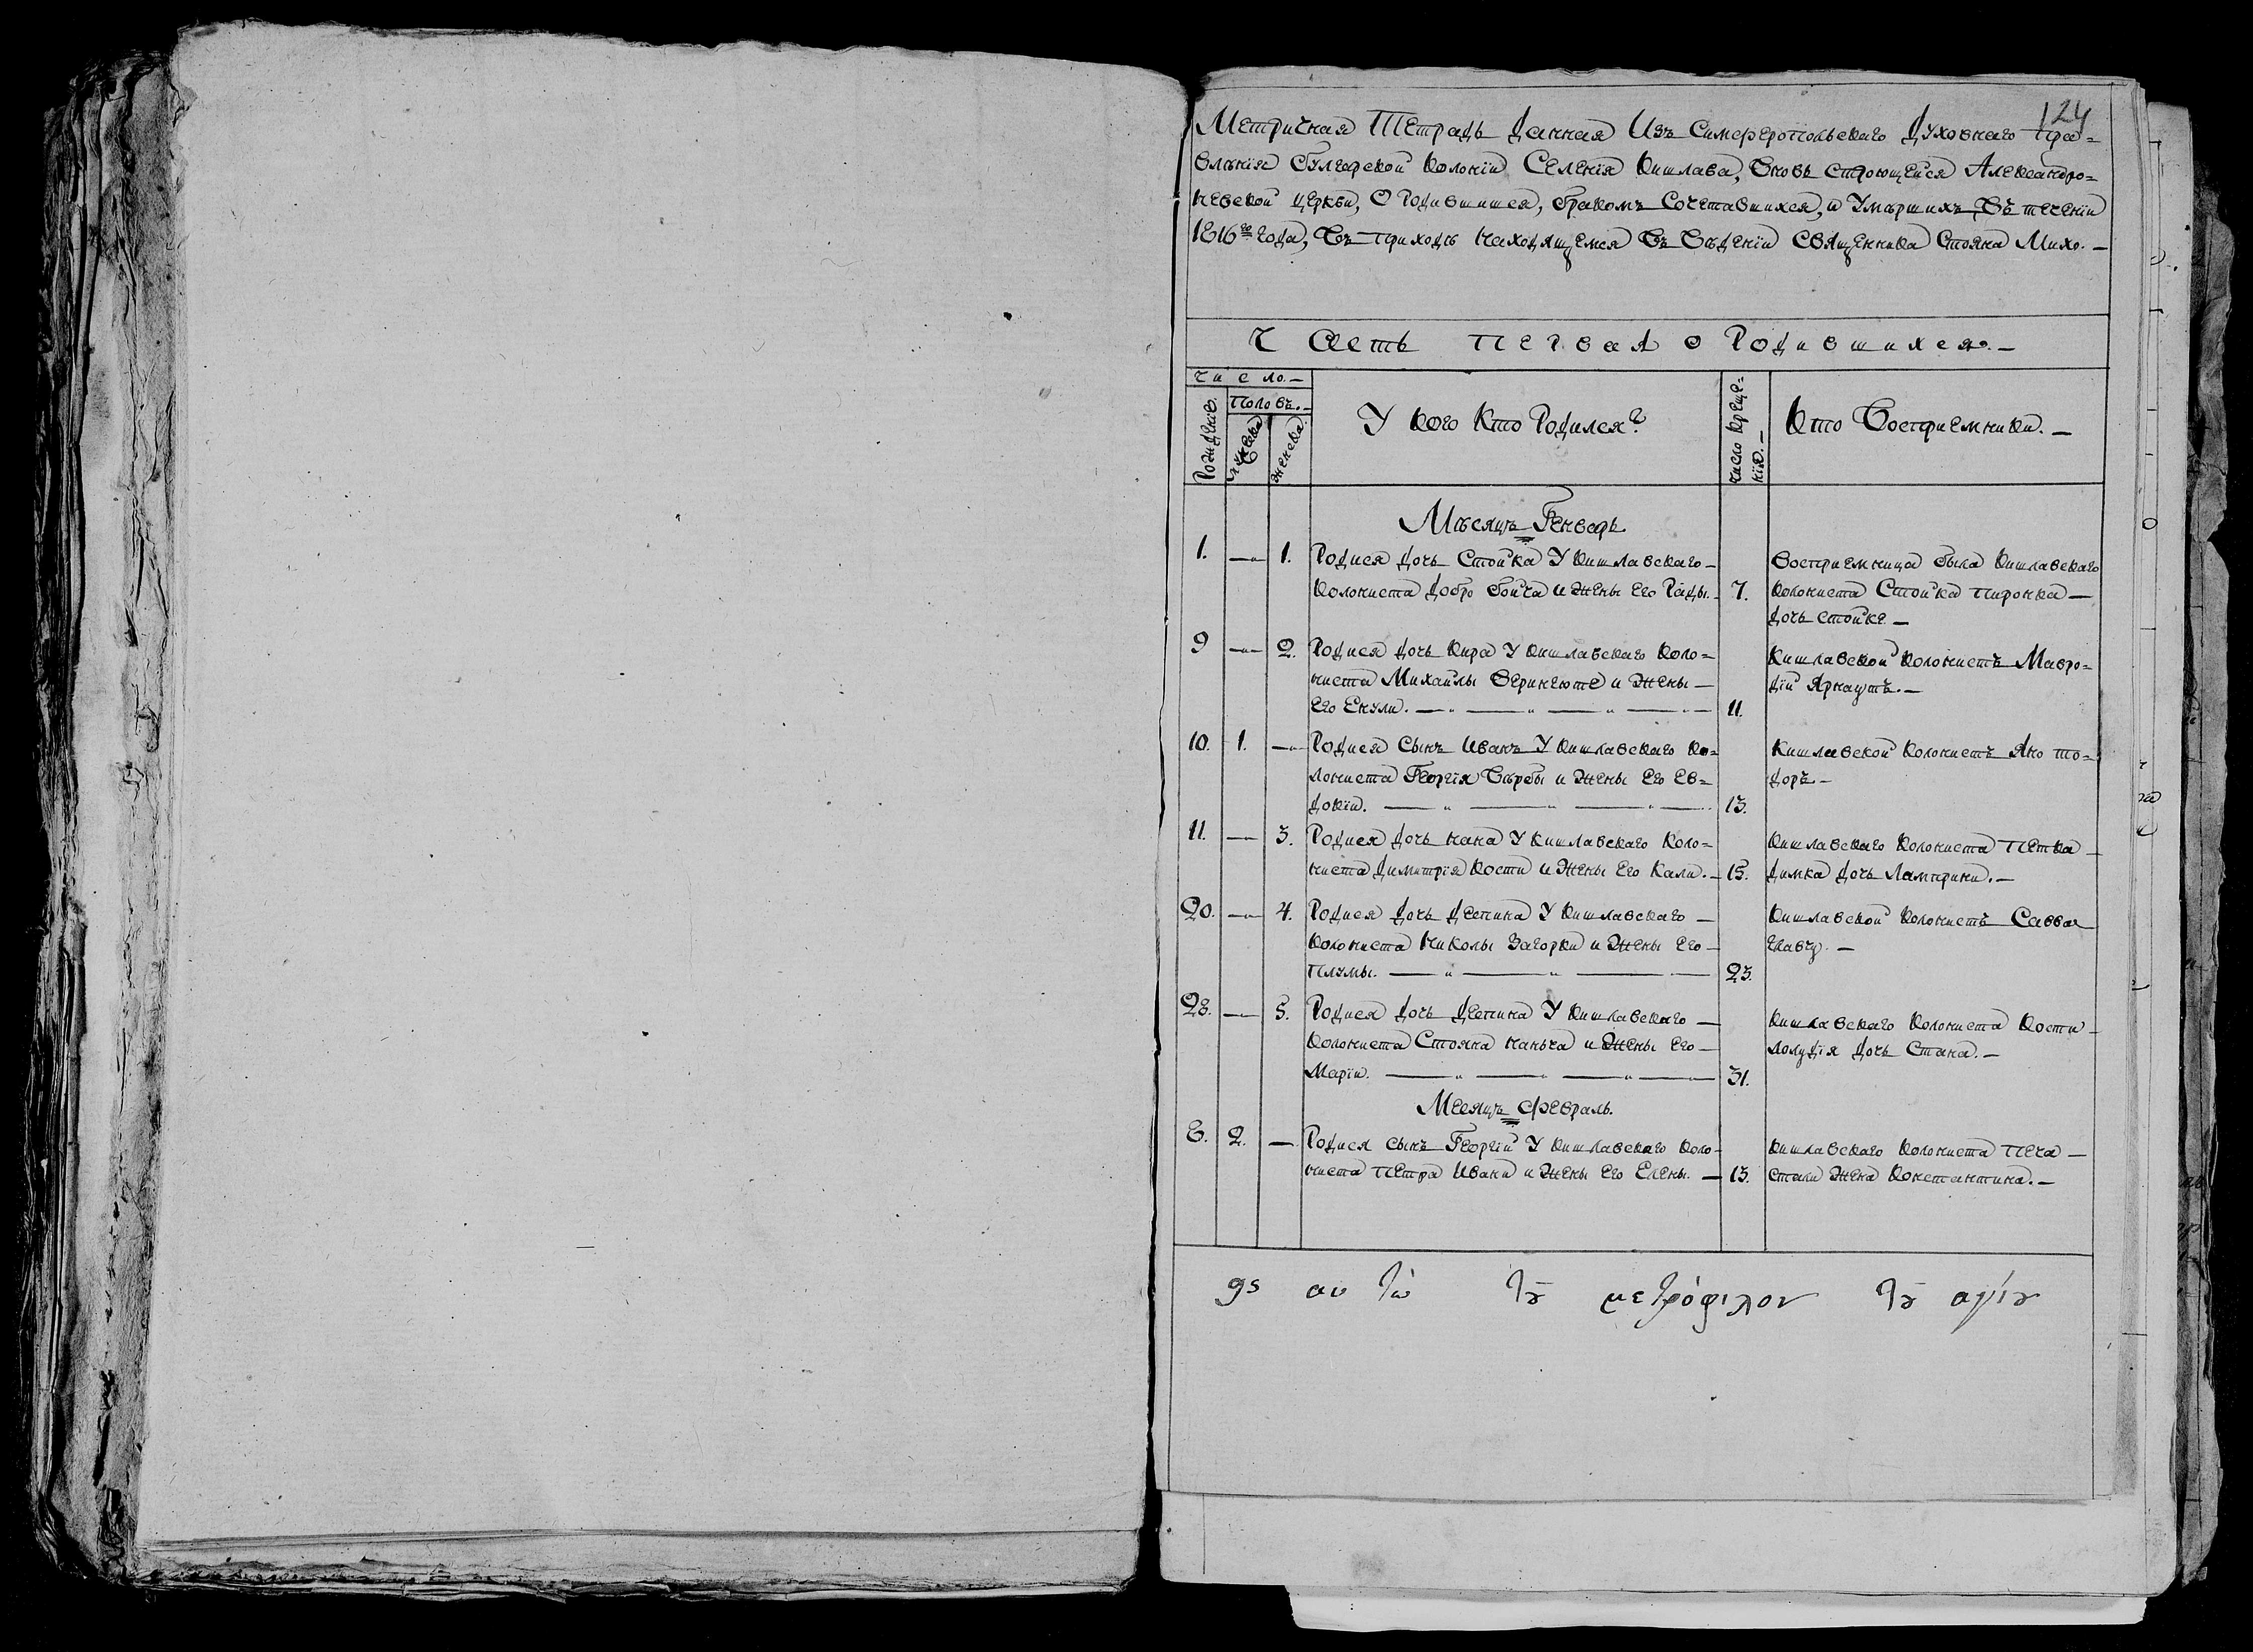 124
Метричная Тетрадь Данная Изъ Симферопольскаго Духовнаго Пра=
вленія Булгарской Колоніи Селенія Кишлава, Вновь строющейся Александро=
невской церкви, О Родившихся, бракомъ Сочетавшихся, и Умершихъ, Въ теченіи
1816го года, Въ приходѣ находящемся Въ Вѣденіи Священника Стояна Михо. —
Часть первая о Родившихся. —
Число. —
Рожденіе.
Полъ.
Мужеска
Женска
У кого Кто Родился?
Число Креще=
нія. —
Кто Восприемники. —
Мѣсяцъ Генварь
1. — 1. Родися Дочь Стойка У Кишлавскаго —
Колониста Добро Бойча и Жены Его Рады. — 7.
Восприемница была Кишлавскаго
Колониста Стойка Пиронка —
Дочь Стойке. —
9 — 2. Родися Дочь Кира У Кишлавскаго Коло=
ниста Михайлы и Жены —
Его Енули. — 11.
Кишлавской Колонистъ Мавро=
дій Арнаутъ. —
10. 1. — Родися Сынъ Иванъ У Кишлавскаго Ко=
лониста Георгія Сырбы и Жены Его Ев=
докіи. — 13.
Кишлавской Колонистъ Яно То=
доръ —
11. — 3. Родися Дочь Нана У Кишлавскаго Коло=
ниста Димитрія Кости и Жены Его Кали. — 15.
Кишлавскаго Колониста Петка —
Димка Дочь Ламприни. —
20. — 4. Родися Дочь Деспина У Кишлавскаго —
Колониста Николы Загорки и Жены Его —
Плумы. — 23.
Кишлавской Колонистъ Савва
28. — 5. Родися Дочь Деспина У Кишлавскаго —
Колониста Стояна Нанъча и Жены Его —
Маріи. — 31.
Кишлавскаго Колониста Кости —
Дочь Стана. —
Месяцъ Февраль.
8. 2. — Родися Сынъ Георгій У Кишлавскаго Коло=
ниста Петра Ивани и Жены Его Елены. — 13.
Кишлавскаго Колониста Печа —
Жена Константина. —
αυ τὼ τȣ̃ μετρόφιλον τȣ̃ αγίȣ